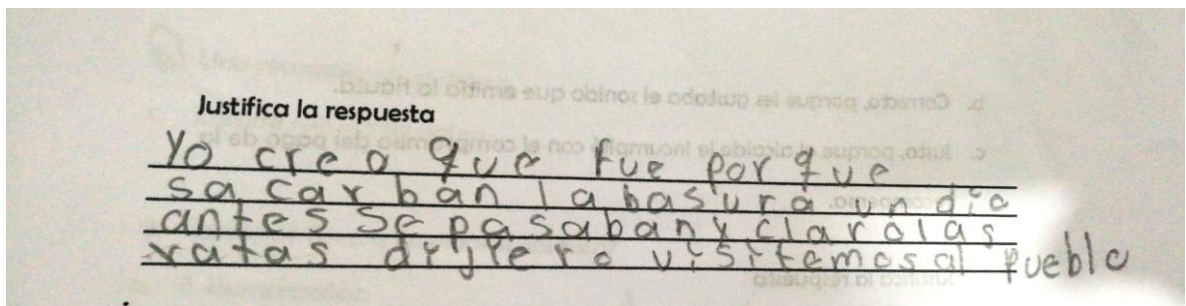 Justifica la respuesta
Yo creo que fue por que
sacarban la basura un dia
antes se pasaban y claro las
ratas dijiero visitemos al pueblo